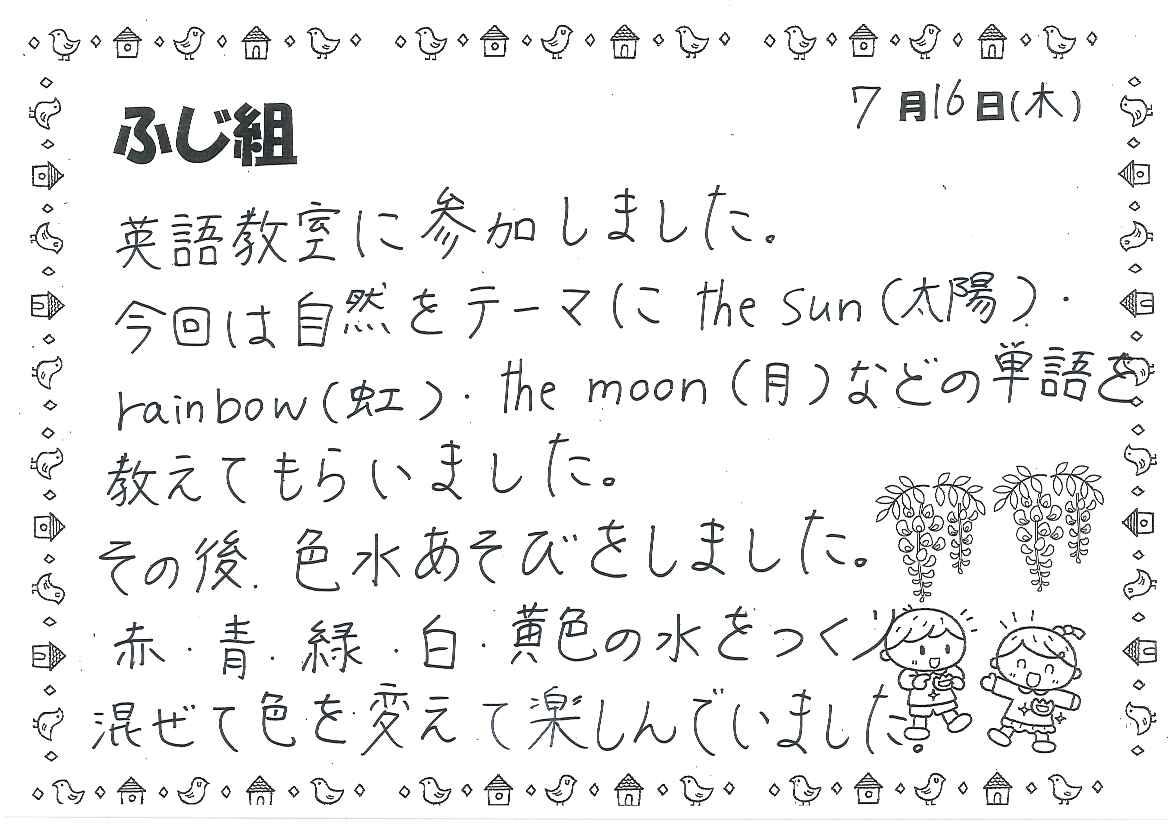 7月16日(木)
ふじ組
英語教室に参加しました。
今回は自然をテーマに the sun (太陽)・
rainbow (虹)・the moon (月)などの単語を
教えてもらいました。
その後、色水あそびをしました。
赤・青・緑・白・黄色の水をつくり
混ぜて色を変えて楽しんでいました。